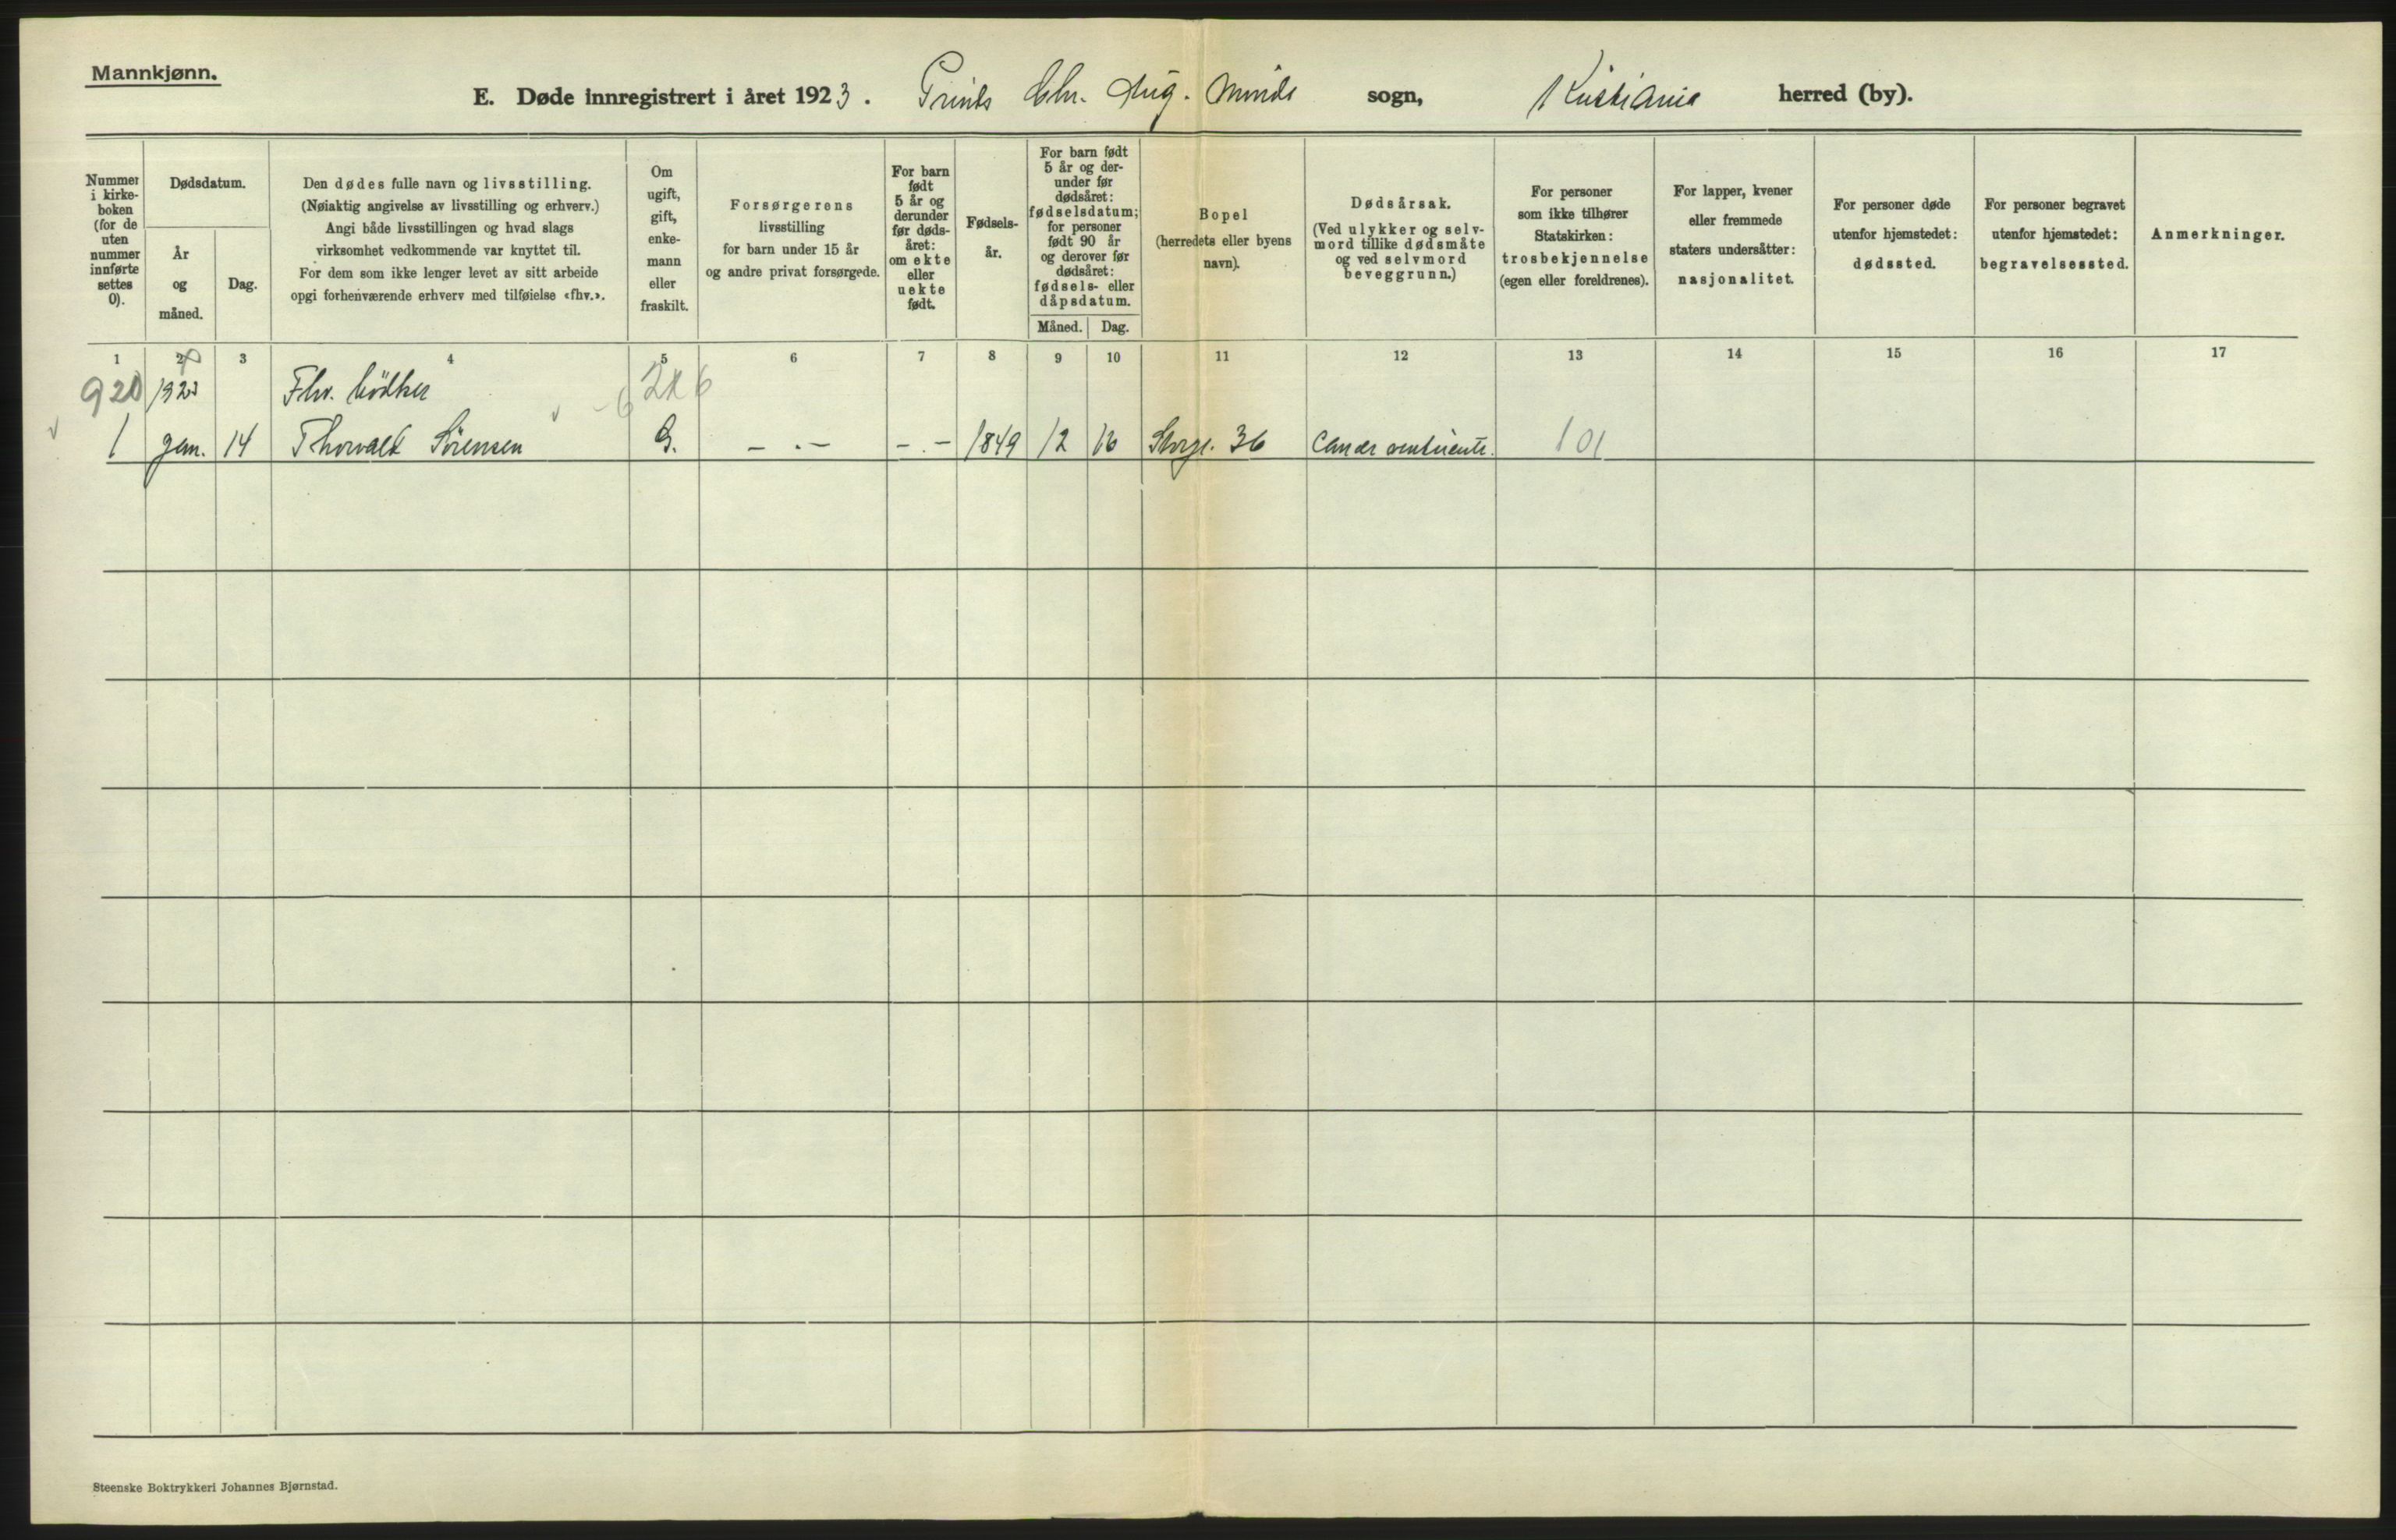 Mannkjønn.
E. Døde innregistrert i året 1923. Prints Chr. Aug. Minde sogn, Kristiania herred (by).
Nummer i kirke-boken (for de uten nummer innførte settes 0).
Dødsdatum.
År og måned.
Dag.
Den dødes fulle navn og livsstilling.
(Nøiaktig angivelse av livsstilling og erhverv.)
Angi både livsstillingen og hvad slags
virksomhet vedkommende var knyttet til.
For dem som ikke lenger levet av sitt arbeide
opgi forhenværende erhverv med tilføielse «fhv.».
Om ugift, gift, enke-mann eller fraskilt.
Forsørgerens
livsstilling
for barn under 15 år
og andre privat forsørgede.
For barn født 5 år og derunder før døds-året: om ekte eller uekte født.
Fødsels-år.
For barn født 5 år og der-under før dødsåret: fødselsdatum; for personer født 90 år og derover før dødsåret: fødsels- eller dåpsdatum.
Måned. Dag.
Bopel
(herredets eller byens
navn).
Dødsårsak.
(Ved ulykker og selv-
mord tillike dødsmåte
og ved selvmord
beveggrunn.)
For personer
som ikke tilhører
Statskirken:
trosbekjennelse
(egen eller foreldrenes).
For lapper, kvener
eller fremmede
staters undersåtter:
nasjonalitet.
For personer døde
utenfor hjemstedet:
dødssted.
For personer begravet
utenfor hjemstedet:
begravelsessted.
Anmerkninger.
1 2 3 4 5 6 7 8 9 10 11 12 13 14 15 16 17
920 1923 Fhv. bödker
1 Jan. 14 Thorvald Sörensen G. - . - - . - 1849 12 16 Storg. 36 Cancer ventriculi. 101
Steenske Boktrykkeri Johannes Bjørnstad.